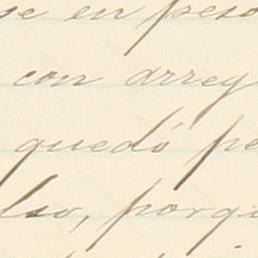 se en peso
con arreg
quedó pe
lso, porqu